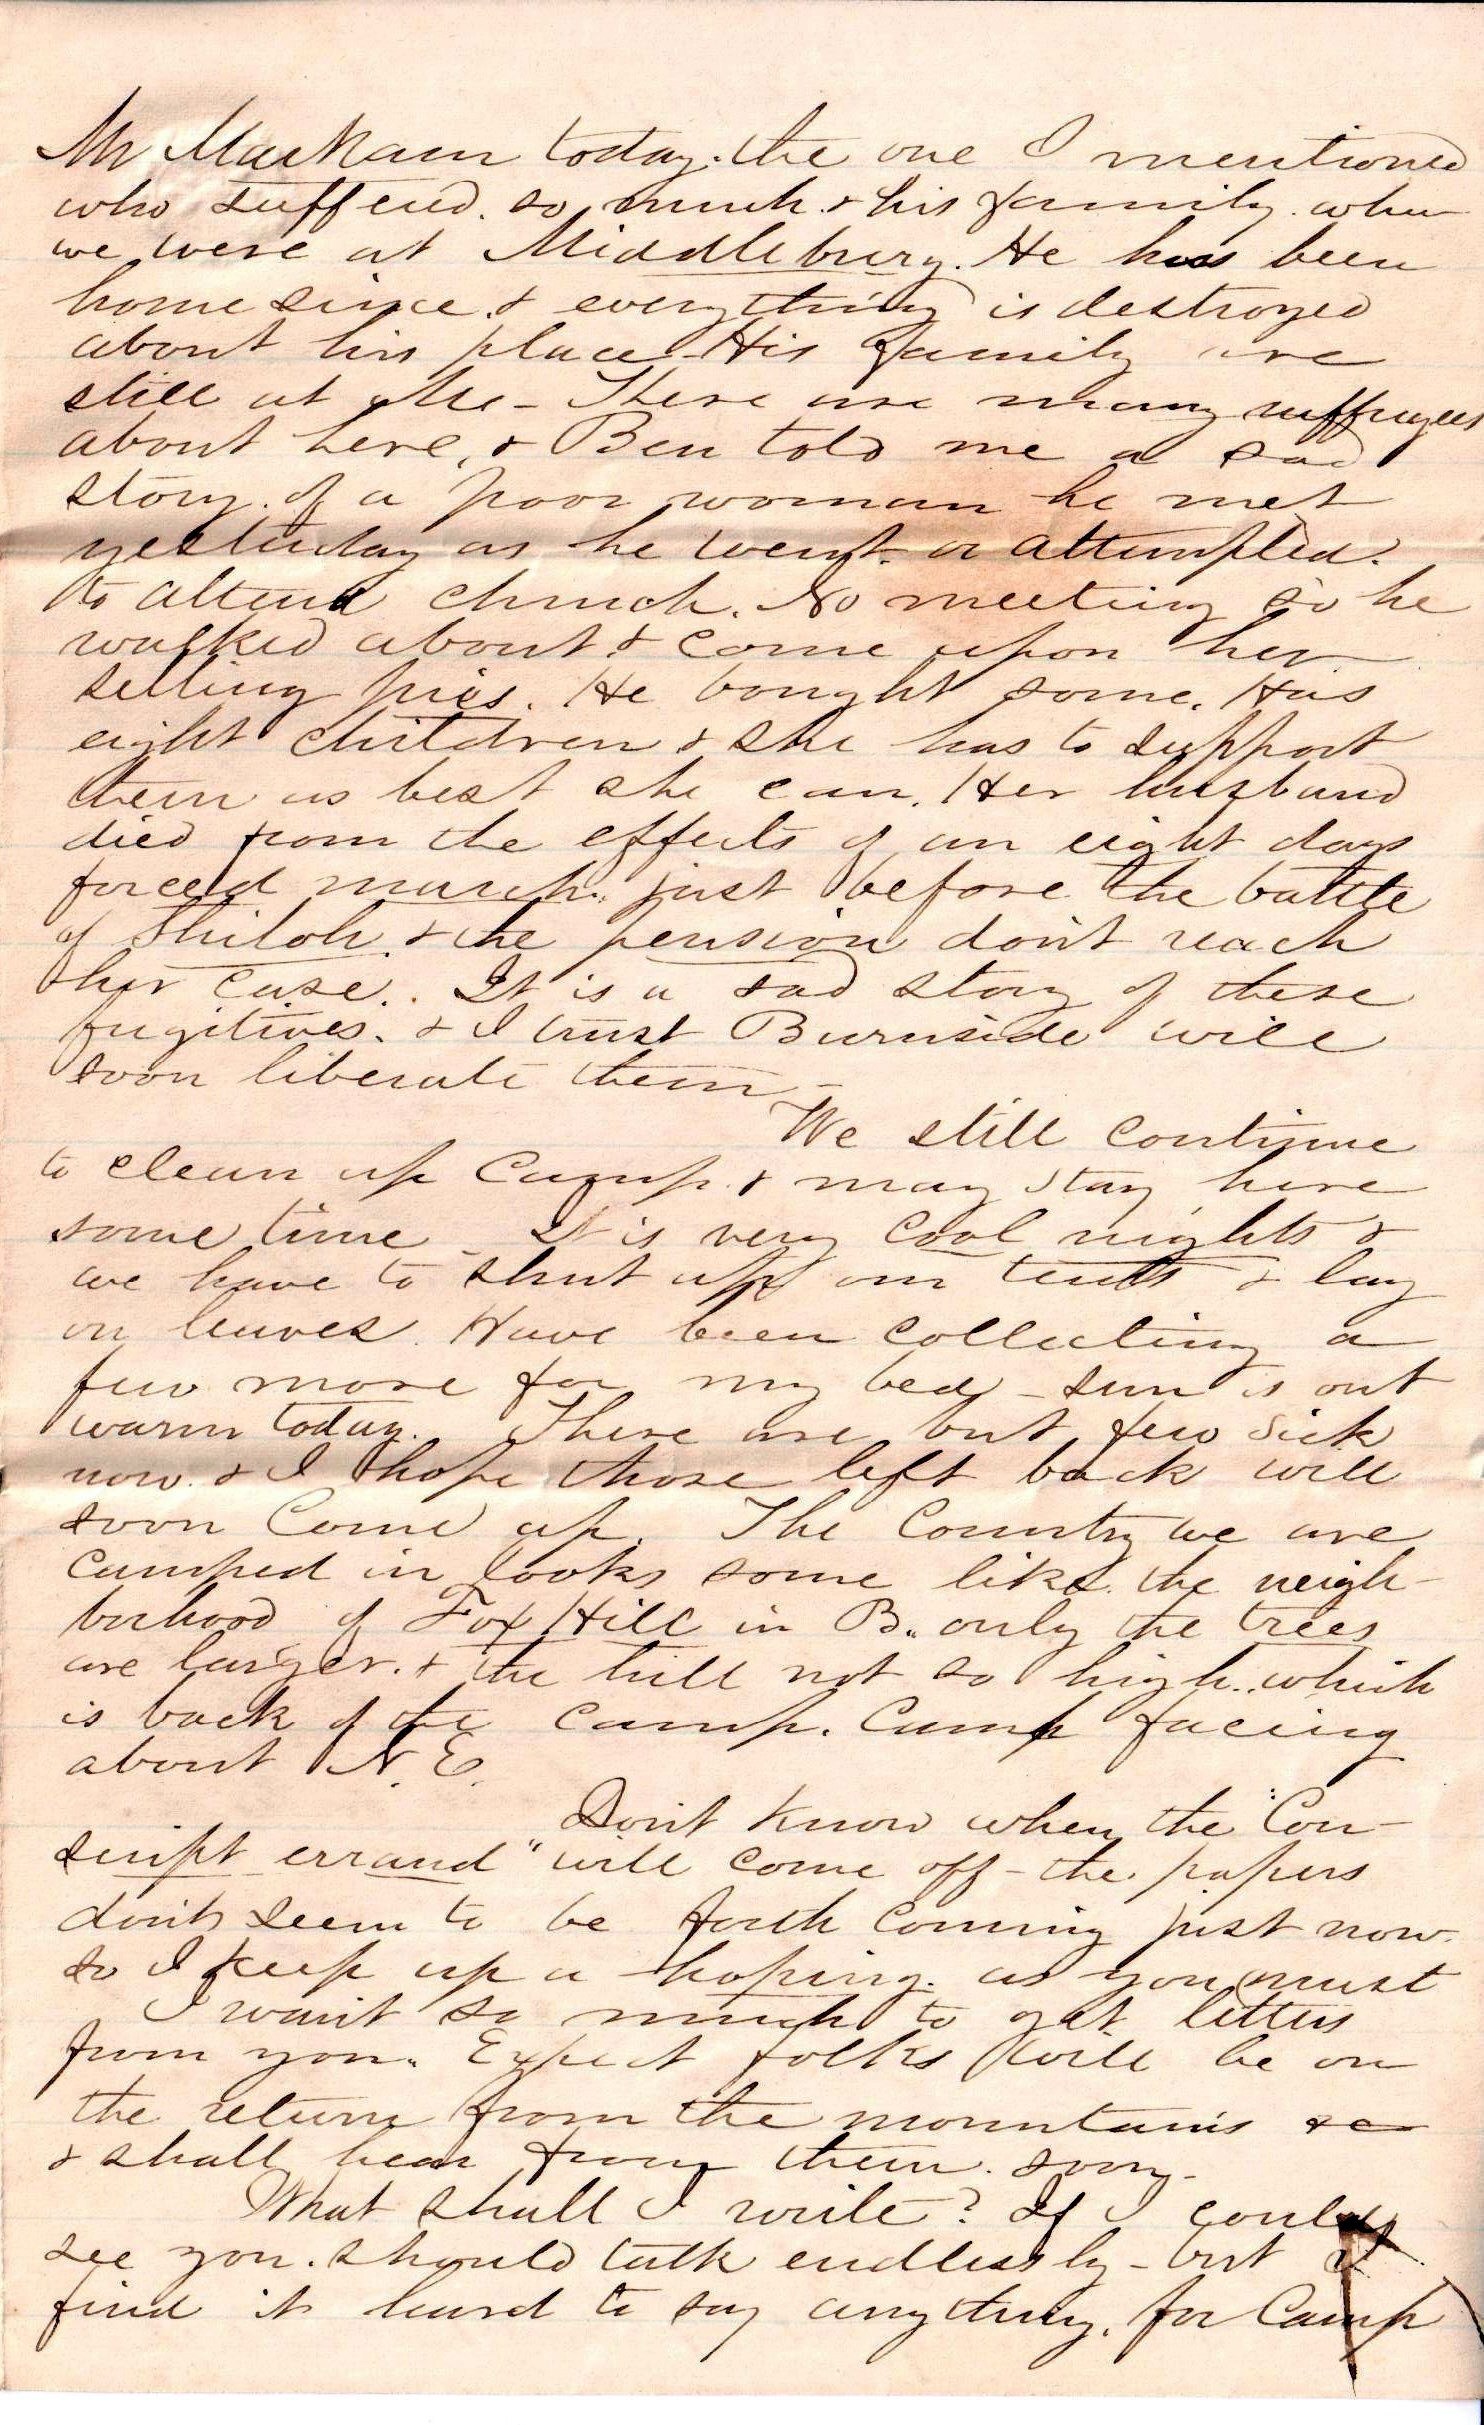 Mr Markam today. the one I mentioned
who suffered. so much. & his family. when
we were at Middlebury. He has been
home since. & everything is destroyed
about his place - His family are
still at Mc - There are many reffugees
about here, & Ben told me a sad
story. of a poor woman he met
yesterday as he went. or attempted.
to attend church. No meeting so he
walked about & come upon her
selling pies. He bought some. Has
eight children & she has to support
them as best she can. Her husband
died from the effects of an eight days
forced march. just before the battle
of Shiloh. & the pension don't reach
her case. It is a sad story of these
fugitives. & I trust Burnside will
soon liberate them -
We still continue
to clean up Camp. & may stay here
some time - It is very cool nights &
we have to shut up our tents & lay
on leaves. Have been collecting a
few more for my bed - sun is out
warm today. There are but few sick
now. & I hope those left back will
soon come up. The Country we are
camped in looks some like the neigh-
borhood of Fox Hill in B. only the trees
are larger. & the hill not so high. which
is back of the camp. Camp facing
about N. E.
Don't know when the "Con-
script errand" will come off - the papers
don't seem to be forth coming just now.
so I keep up a hoping. as you must
I want so much to get letters
from you. Expect folks will be on
the return from the mountains
& shall hear from them. soon -
What shall I write? If I could
see you. should talk endlessly - but I
find it hard to say anything. for Camp